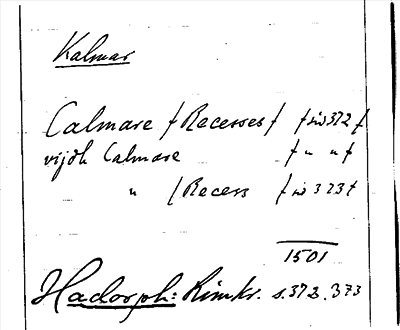 Kalmar
Calmare /Recesses/ /sid 372/
vijdh Calmare /" "/
" /Recess /sid 373/
1501
Hadorph: Rimkr. s. 372. 373